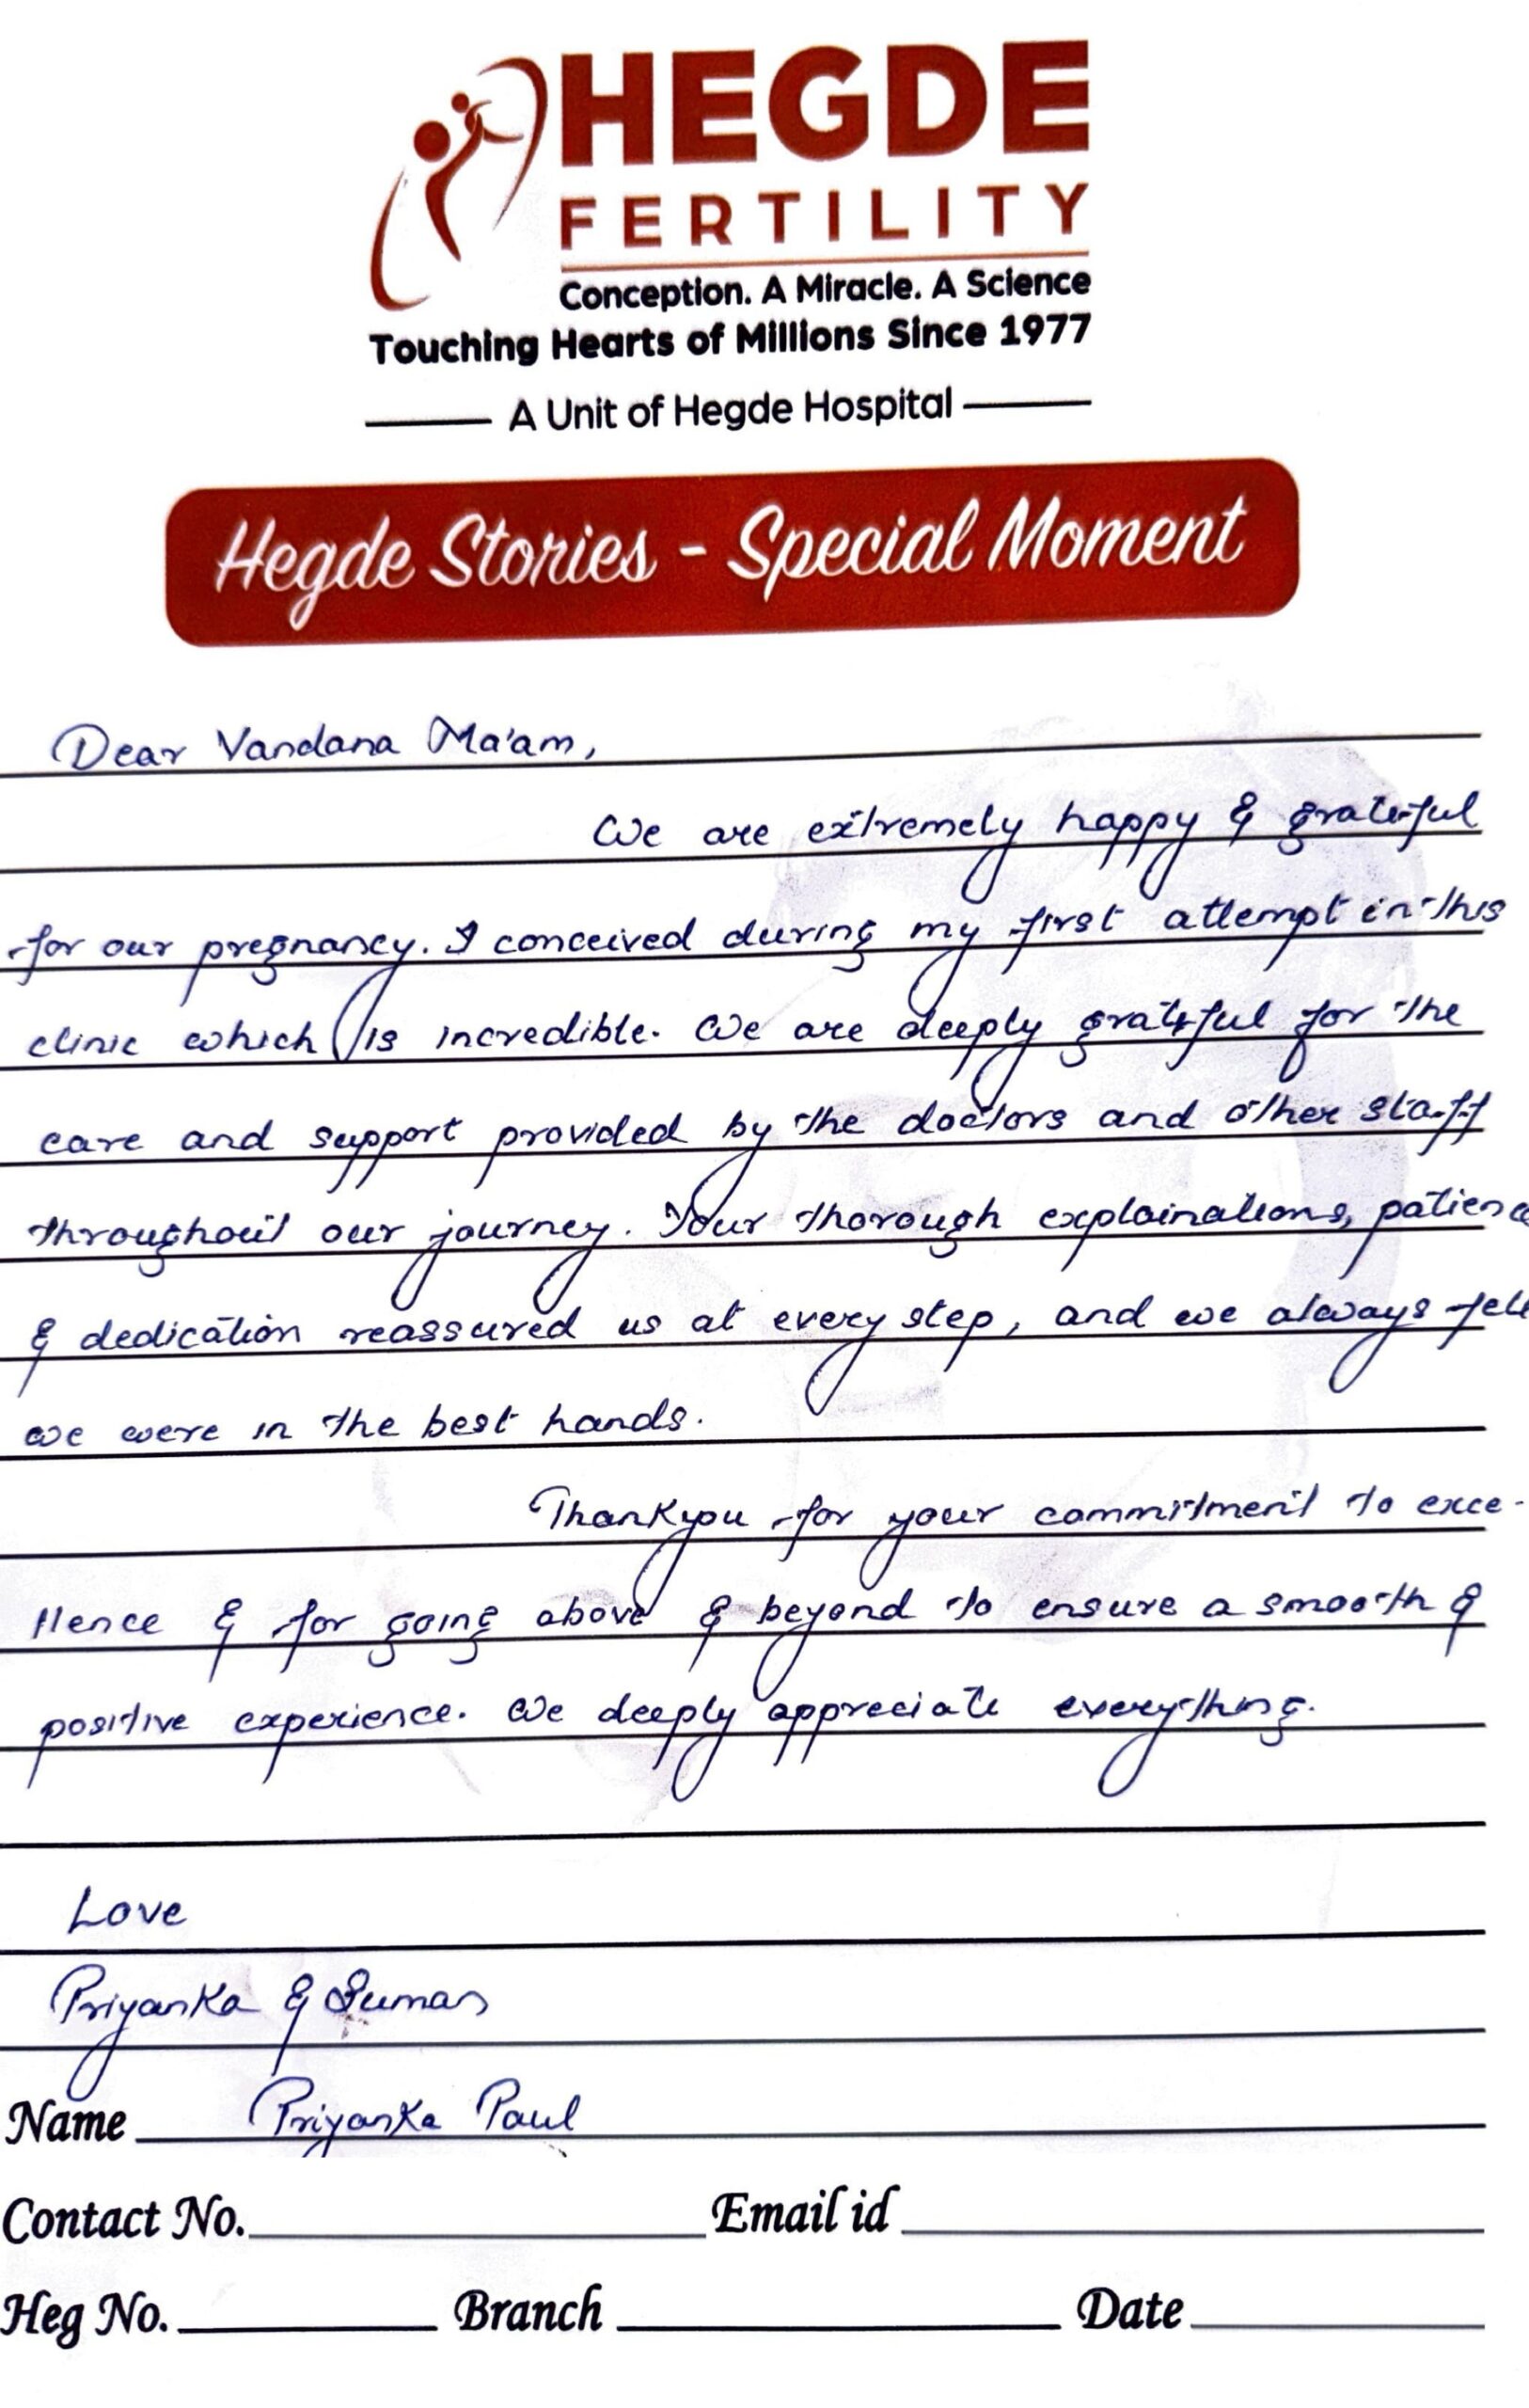 HEGDE
FERTILITY
Conception. A Miracle. A Science
Touching Hearts of Millions Since 1977
A Unit of Hegde Hospital
Hegde Stories - Special Moment
Dear Vandana Ma'am,
We are extremely happy & grateful
for our pregnancy. I conceived during my first attempt in this
clinic which is incredible. We are deeply grateful for the
care and support provided by the doctors and other staff
throughout our journey. Your thorough explainations, patience
& dedication reassured us at every step, and we always felt
we were in the best hands.
Thankyou for your commitment to exce-
llence & for going above & beyond to ensure a smooth &
positive experience. We deeply appreciate everything.
Love
Priyanka & Suman
Name Priyanka Paul
Contact No. Email id
Heg No. Branch Date